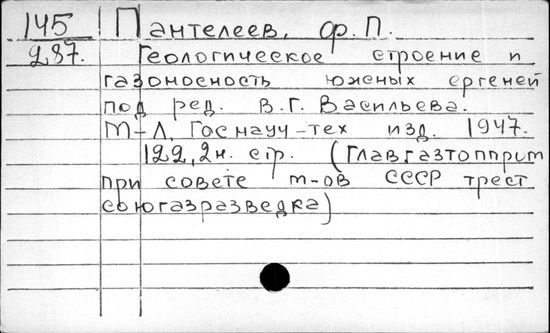 145 Пантелеев, Ф.П.
287. Геологическое строение и
газоносность южных ергеней
под ред. В.Г. Васильева.
М-Л. Госнауч-тех изд. 1947.
122, 2н. стр. (Главгазтоппром
при совете м-ов СССР трест
союзгазразведка)